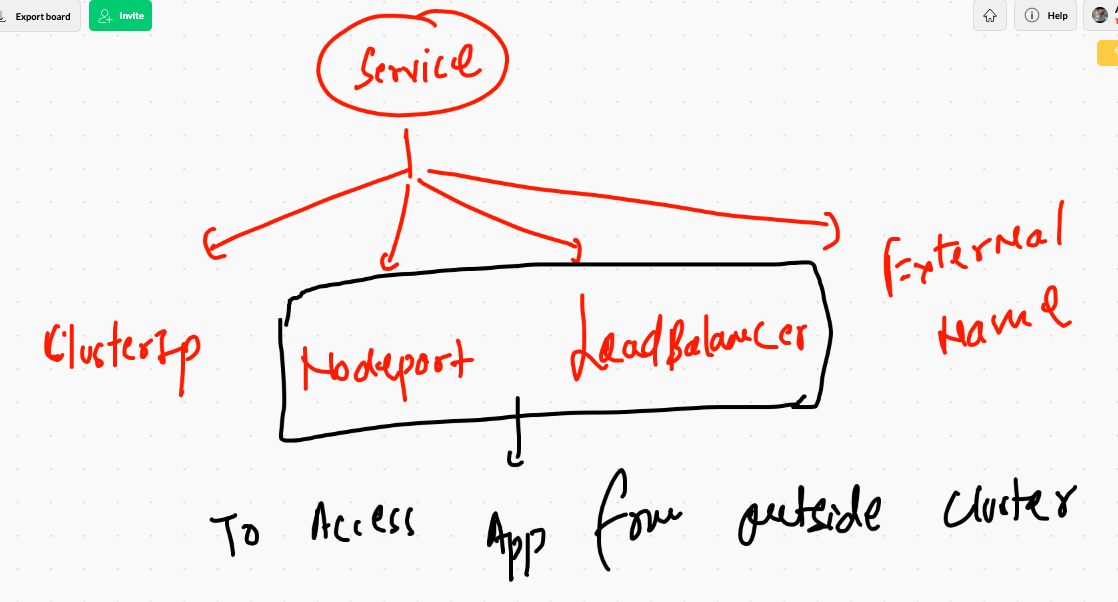 Export board
Invite
Help
Service
ClusterIp
Nodeport
LoadBalancer
External
Name
To Access App from outside cluster